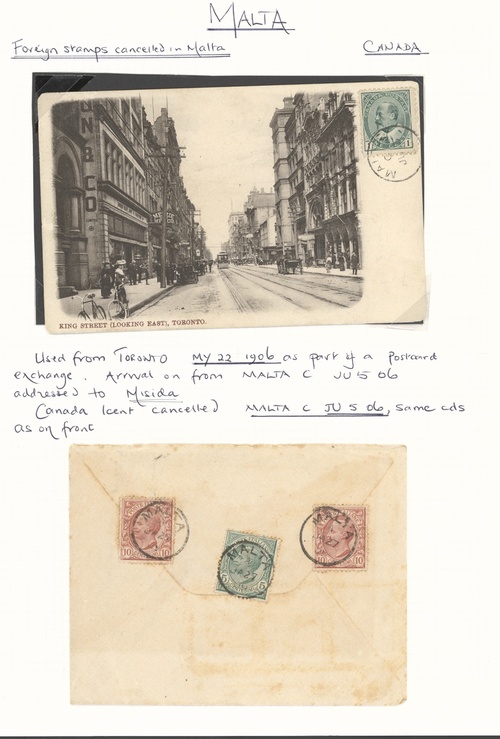 MALTA
Foreign stamps cancelled in Malta
CANADA
N & CO
1 1
MALTA
KING STREET (LOOKING EAST), TORONTO.
Used from TORONTO MY 22 1906 as part of a Postcard
exchange. Arrival on from MALTA C JU 5 06
addressed to Misida
Canada 1cent cancelled MALTA C JU 5 06, same cds
as on front
MALTA
10 10
MALTA
5 5
MALTA
10 10